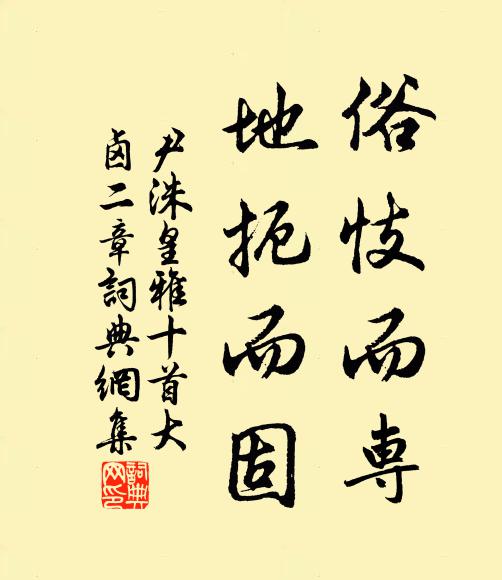 俗忮而専
地扼而固
尹洙皇雅十首大
鹵二章詞典網集
詞典
网印